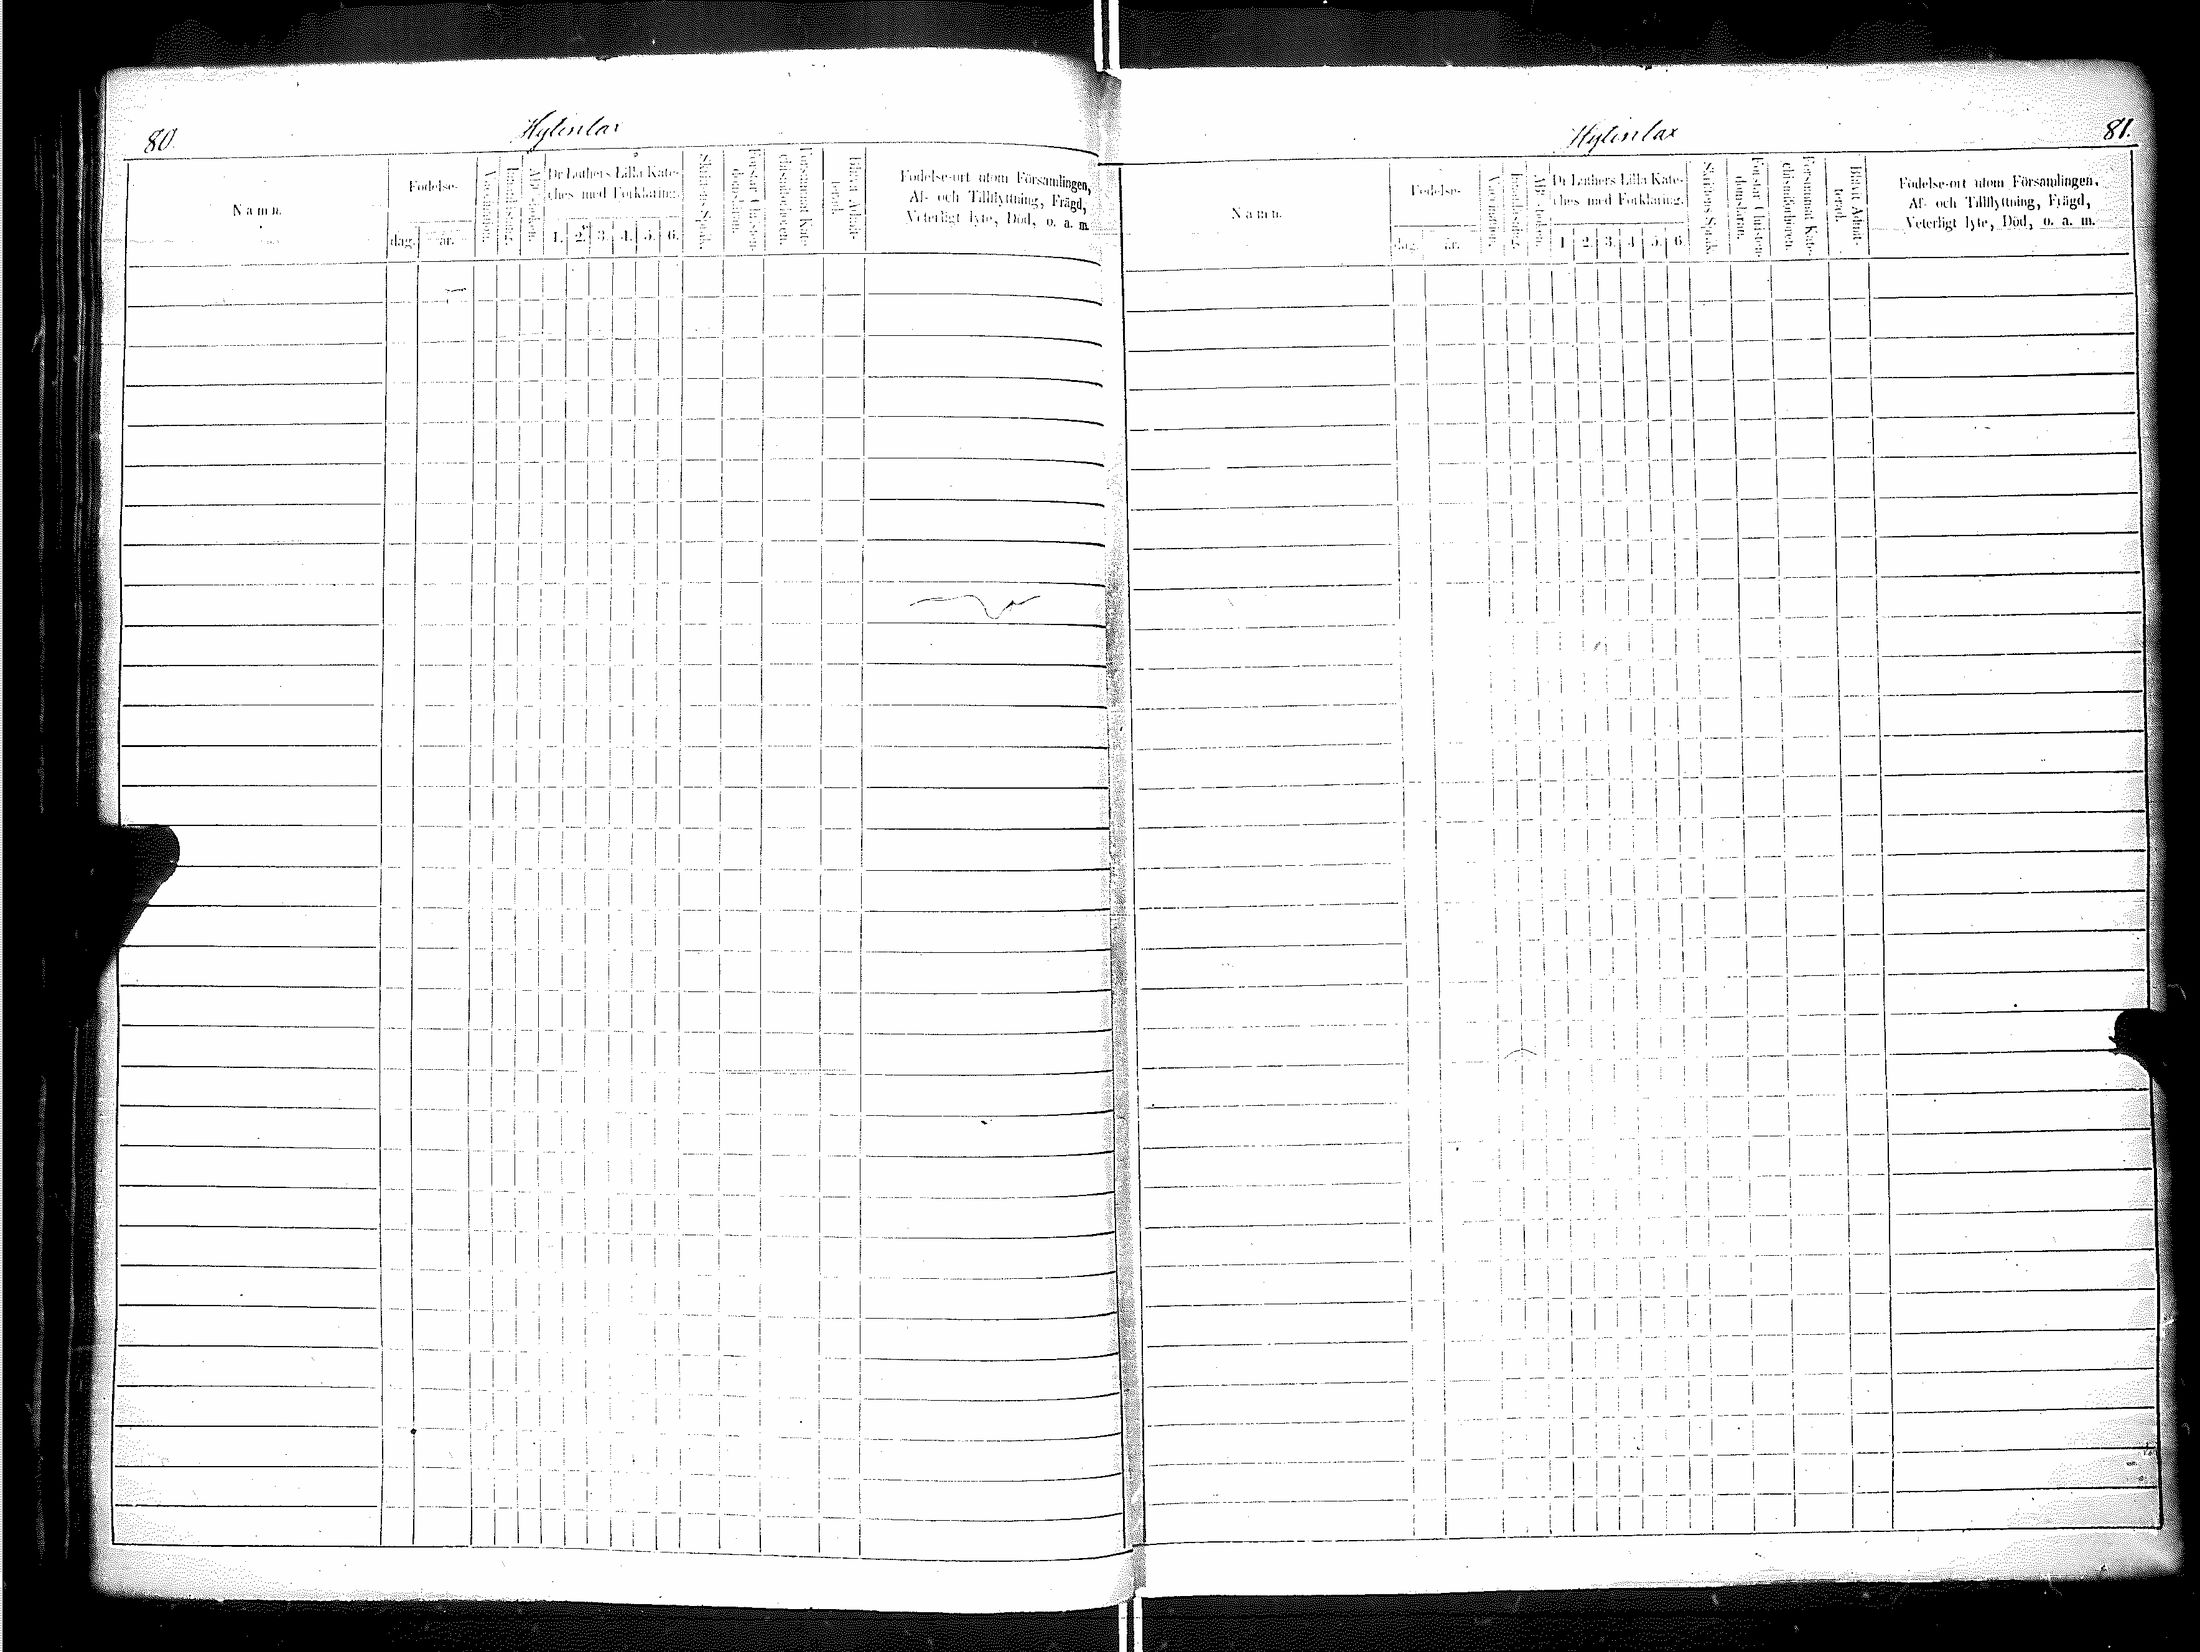 80.
Hylinlax
Namn.
Födelse-
dag.
år.
Vaccination.
Innanläsning.
ABC-boken.
Dr Luthers Lilla Kate-
ches med Förklaring.
1. 2. 3. 4. 5. 6.
Skriftens Språk.
Förstår Christen-
domsläran.
Försummat Kate-
chismiförhören.
Blifvit Admit-
terad.
Födelse-ort utom Församlingen,
Af- och Tillflyttning, Frägd,
Veterligt lyte, Död, o. a. m.
Hylinlax
81.
Namn.
Födelse-
dag.
år.
Vaccination.
Innanläsning.
ABC-boken.
Dr Luthers Lilla Kate-
ches med Förklaring.
1. 2. 3. 4. 5. 6.
Skriftens Språk.
Förstår Christen-
domsläran.
Försummat Kate-
chismiförhören.
Blifvit Admit-
terad.
Födelse-ort utom Församlingen,
Af- och Tillflyttning, Frägd,
Veterligt lyte, Död, o. a. m.